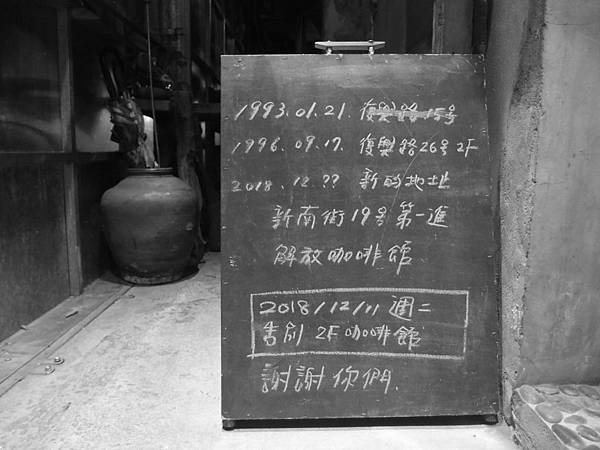 1993.01.21. 復興路15号
1996.09.17. 復興路26号2F
2018.12.?? 新的地址
新南街19号第一進
解放咖啡館
2018/12/11 週二
告別 2F咖啡館
謝謝你們.